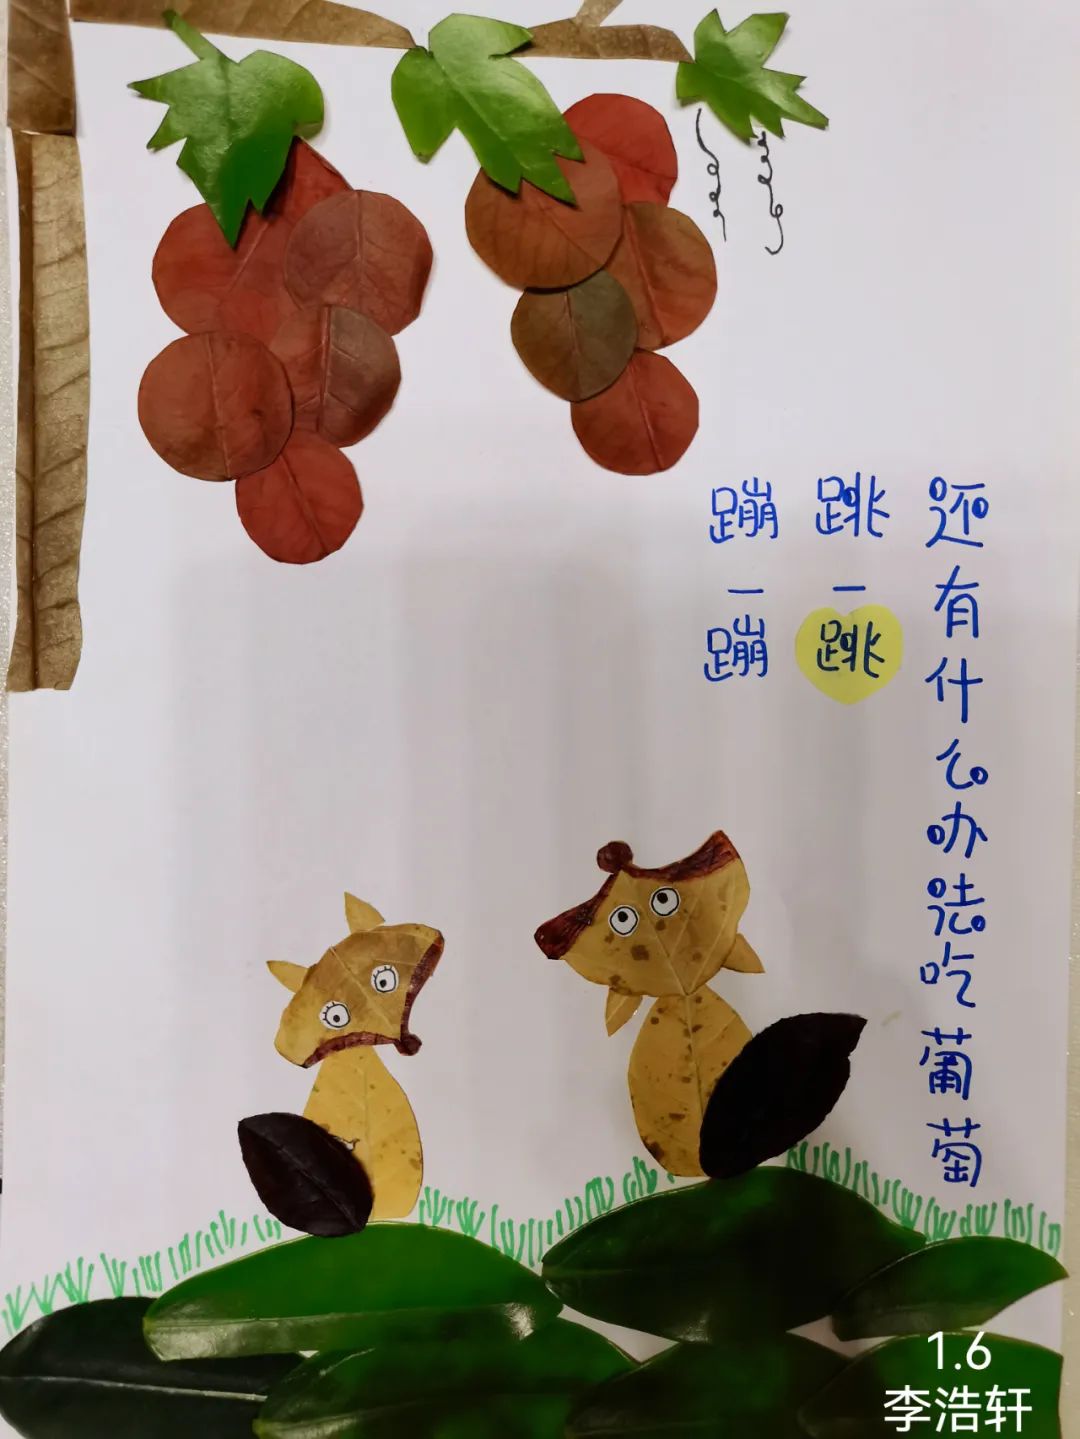 还有什么办法吃葡萄
跳一跳
蹦一蹦
1.6
李浩轩